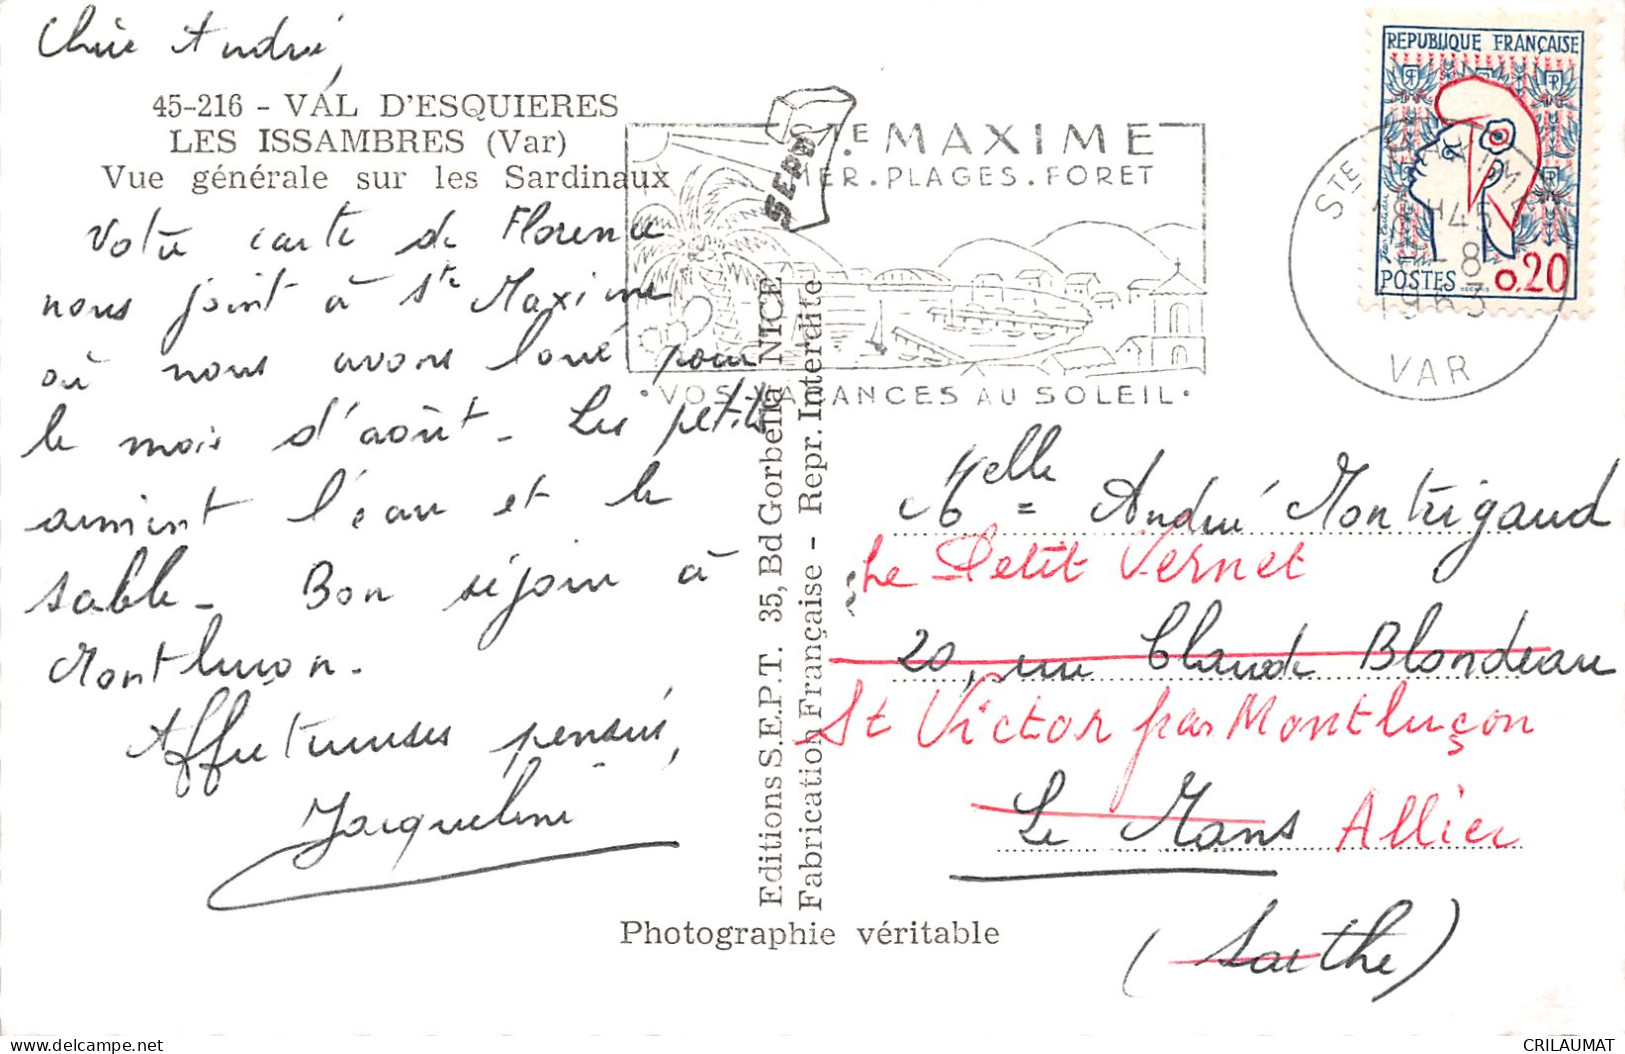 Chère André,
45-216 - VAL D'ESQUIERES
LES ISSAMBRES (Var)
Vue générale sur les Sardinaux
Votre carte de Florence
nous joint à Ste Maxime
où nous avons loué pour
le mois d'août - Les petits
aiment l'eau et le
sable - Bon séjour à
Montluçon -
Affectueuses pensées,
Jacqueline
Editions S.E.P.T. 35, Bd Gorbella NICE
Fabrication Française - Repr. Interdite
SEPT
Photographie véritable
STE MAXIME
MER. PLAGES. FORET
• VOS VACANCES AU SOLEIL •
STE MAXIME
18H45
-8
1963
VAR
REPUBLIQUE FRANÇAISE
POSTES 0,20
Melle = André Montrigaud
Le Petit Vernet
20, rue Claude Blondeau
St Victor par Montluçon
Le Mans Allier
(Sarthe)
CRILAUMAT